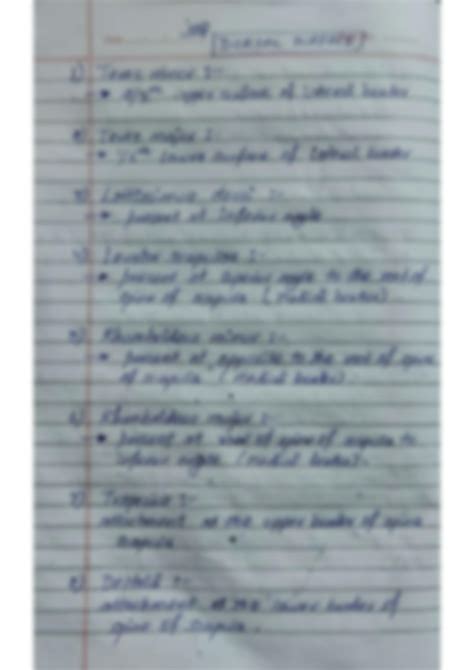 1) Teres minor :-
• upper surface of lateral border
2) Teres major :-
• lower surface of lateral border
3) Latissimus dorsi :-
• present at inferior angle
4) Levator scapulae :-
• present at superior angle to the root of
spine of scapula (medial border)
5) Rhomboideus minor :-
• present at opposite to the root of spine
of scapula (medial border)
6) Rhomboideus major :-
• present at root of spine of scapula to
inferior angle (medial border).
7) Trapezius :-
attachment at the upper border of spine
scapula
8) Deltoid :-
attachment at the lower border of
spine of scapula.